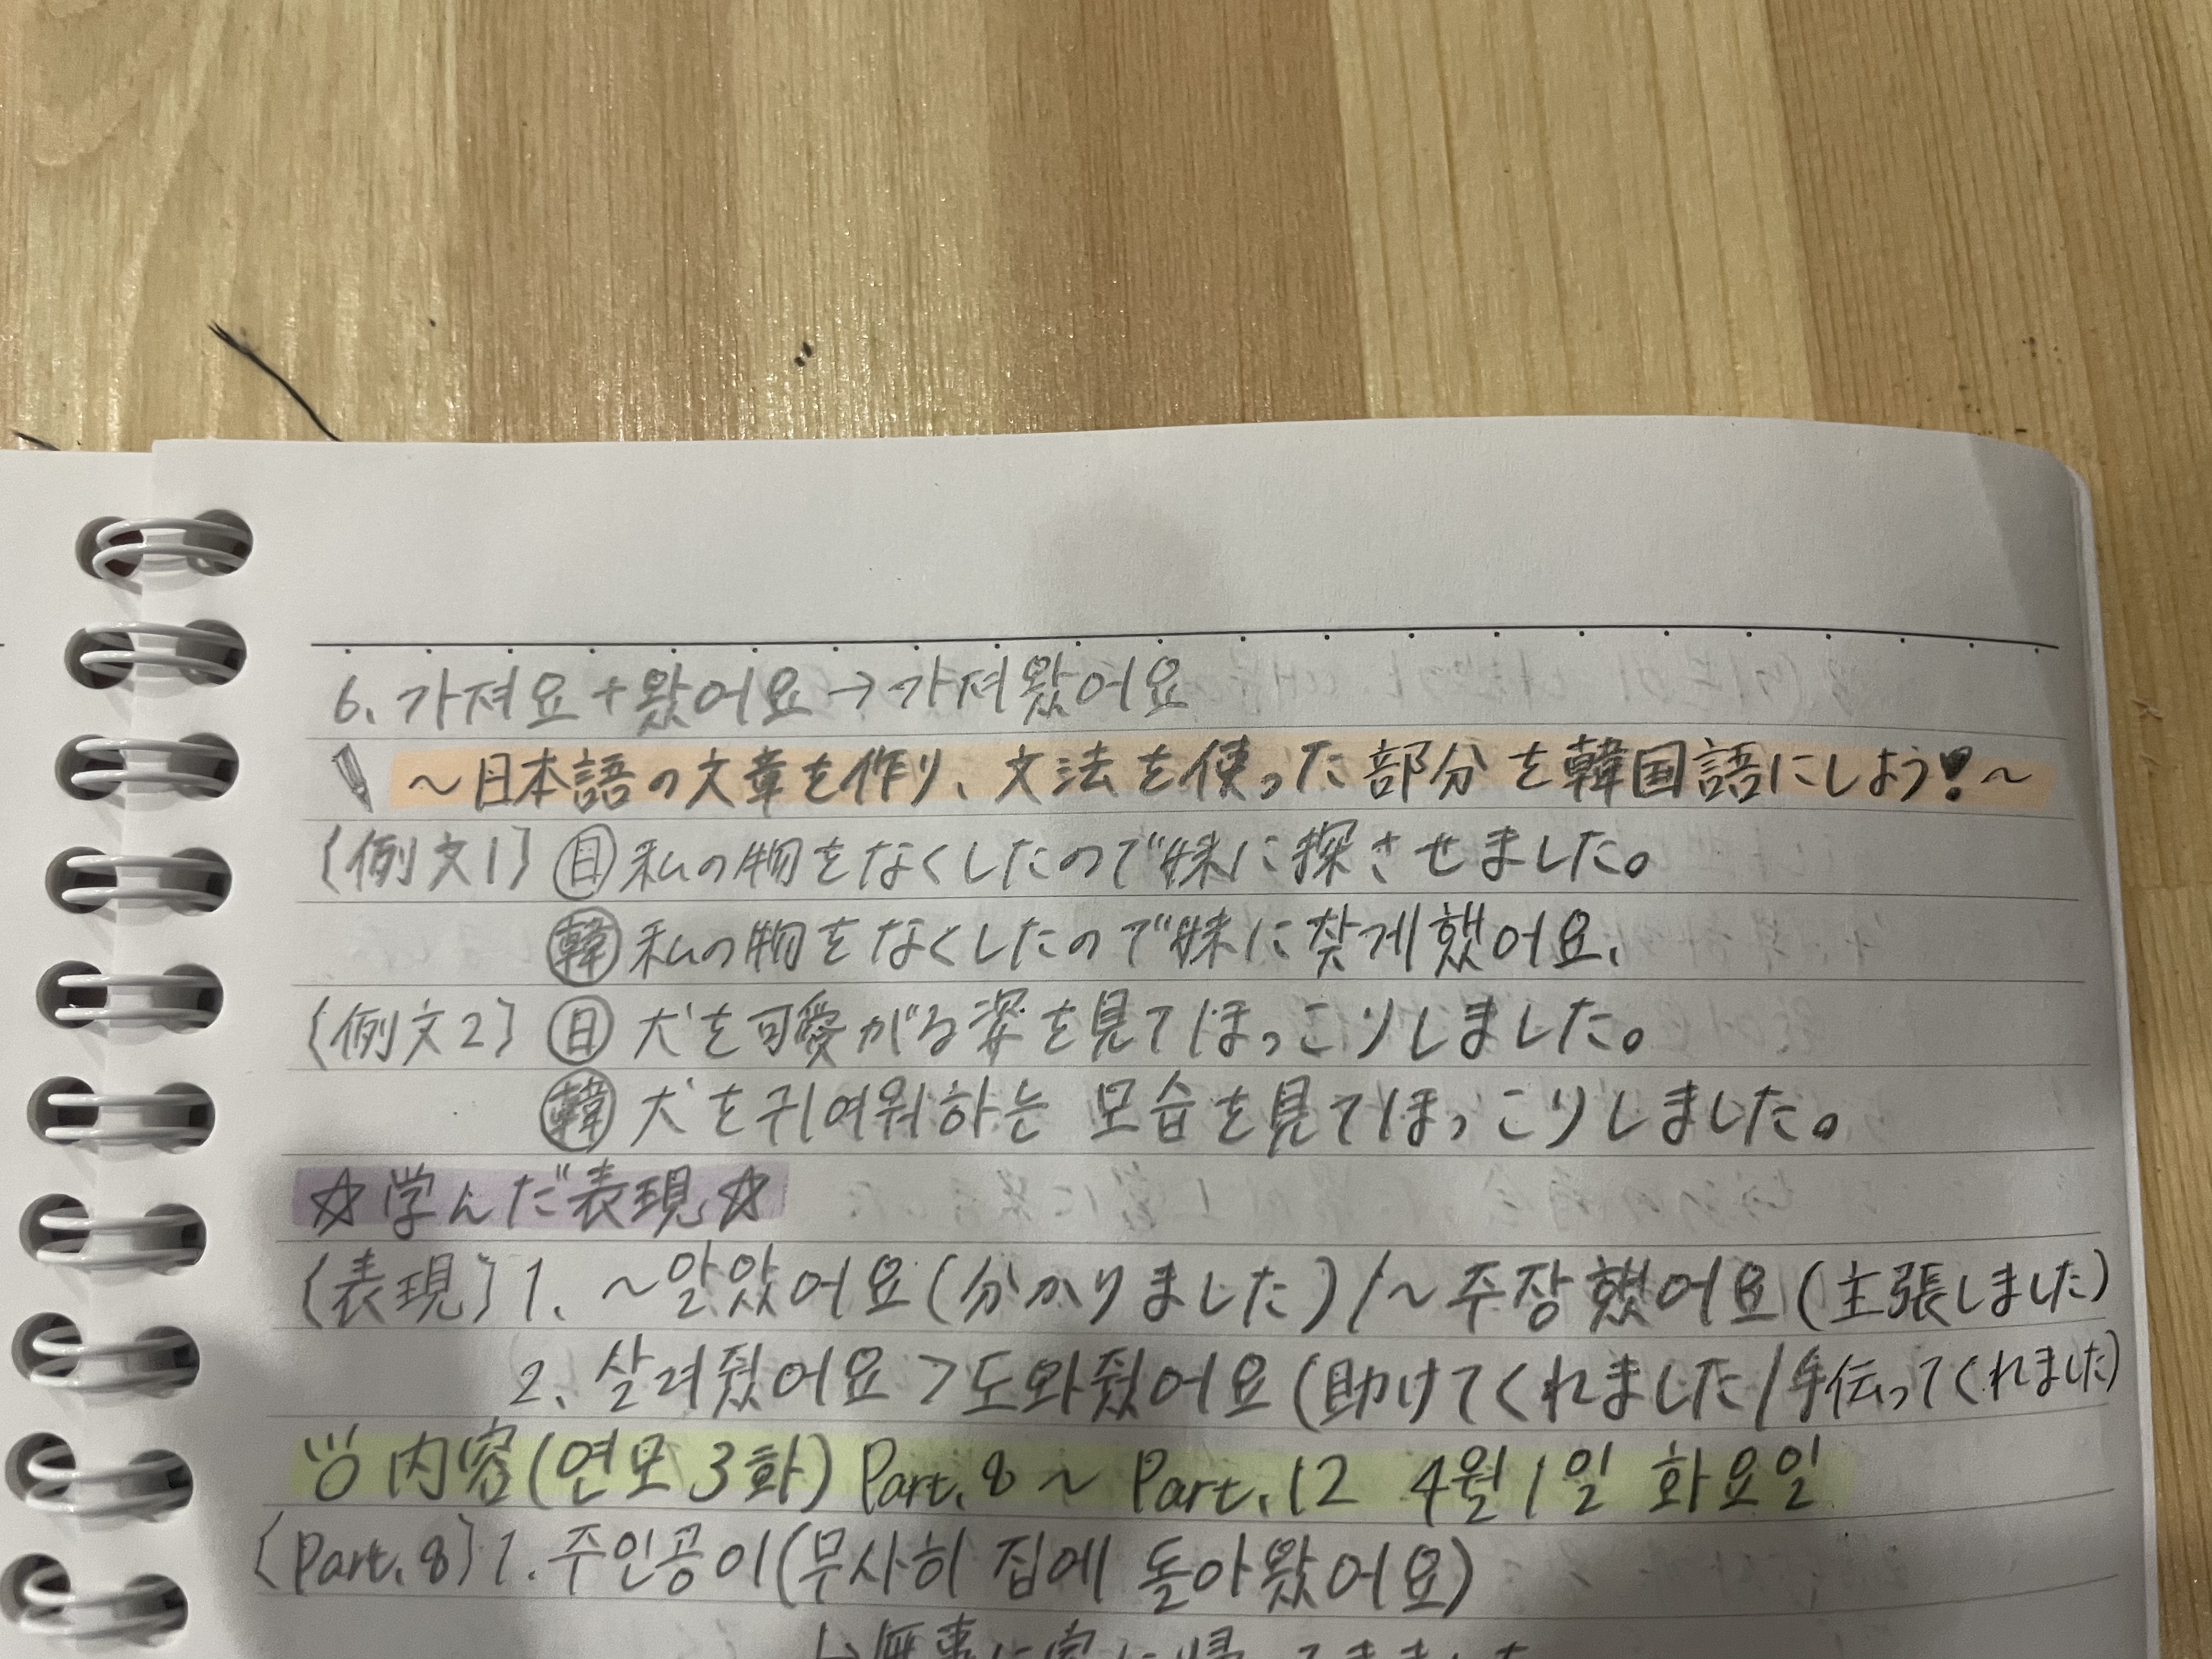 6. 가져요+왔어요→가져왔어요
~日本語の文章を作り、文法を使った部分を韓国語にしよう!~
〔例文1〕 日 私の物をなくしたので妹に探させました。
韓 私の物をなくしたので妹に찾게했어요.
〔例文2〕 日 犬を可愛がる姿を見てほっこりしました。
韓 犬を귀여워하는 모습を見てほっこりしました。
☆学んだ表現☆
〔表現〕1. ~알았어요(分かりました)/~주장했어요(主張しました)
2. 살려줬어요>도와줬어요(助けてくれました/手伝ってくれました)
内容(연모3화) Part.8 ~ Part.12 4월1일 화요일
〔Part.8〕1. 주인공이(무사히 집에 돌아왔어요)
↳無事に家に帰ってきました